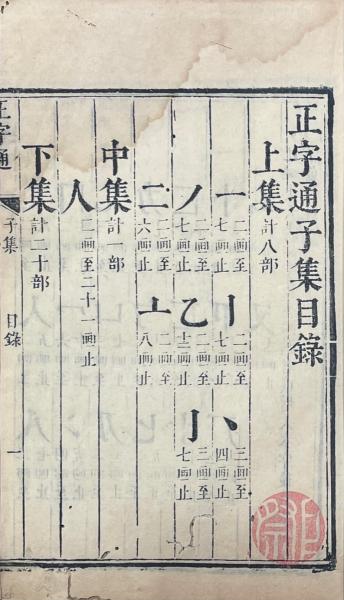 正字通子集目錄
上集計八部
一二画至七画止 丨二画至七画止 丶三画至四画止
丿二画至七画止 乙二画至十二画止 亅三画至七画止
二二画至六画止 亠二画至八画止
中集計一部
人二画至二十一画止
下集計二十部
正字通 子集 目錄 一